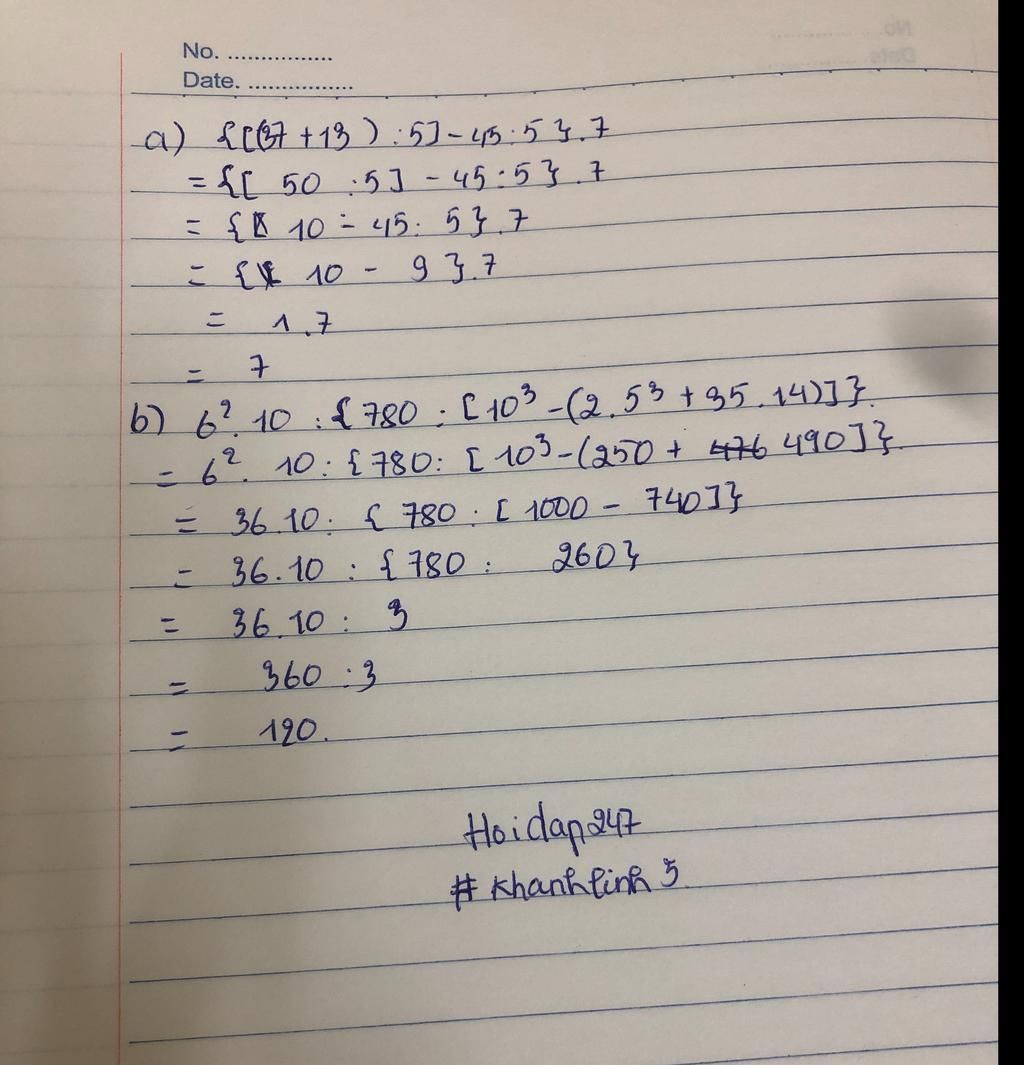 No. ................
Date. ................
a) {[(37 + 13) : 5] - 45 : 5}.7
= {[ 50 : 5] - 45 : 5}.7
= { 10 - 45 : 5}.7
= { 10 - 9 }.7
= 1.7
= 7
b) 6². 10 : {780 : [10³ - (2.5³ + 35.14)]}.
= 6². 10 : {780 : [10³ - (250 + 476 490]}.
= 36.10 : { 780 : [ 1000 - 740]}
= 36.10 : {780 : 260}
= 36.10 : 3
= 360 : 3
= 120.
Hoidap247
# Khanhlinh 5